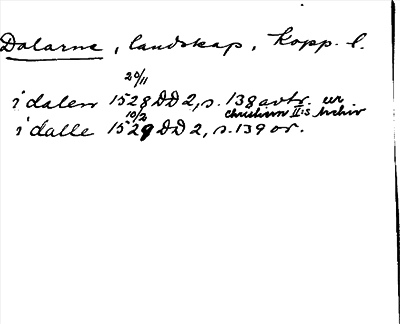 Dalarne, landskap, Kopp. l.
20/11
i dalen 1528 DD 2, s. 138 avtr. ur
10/2 Christiern II:s Archiv
i dalle 1529 DD 2, s. 139 or.